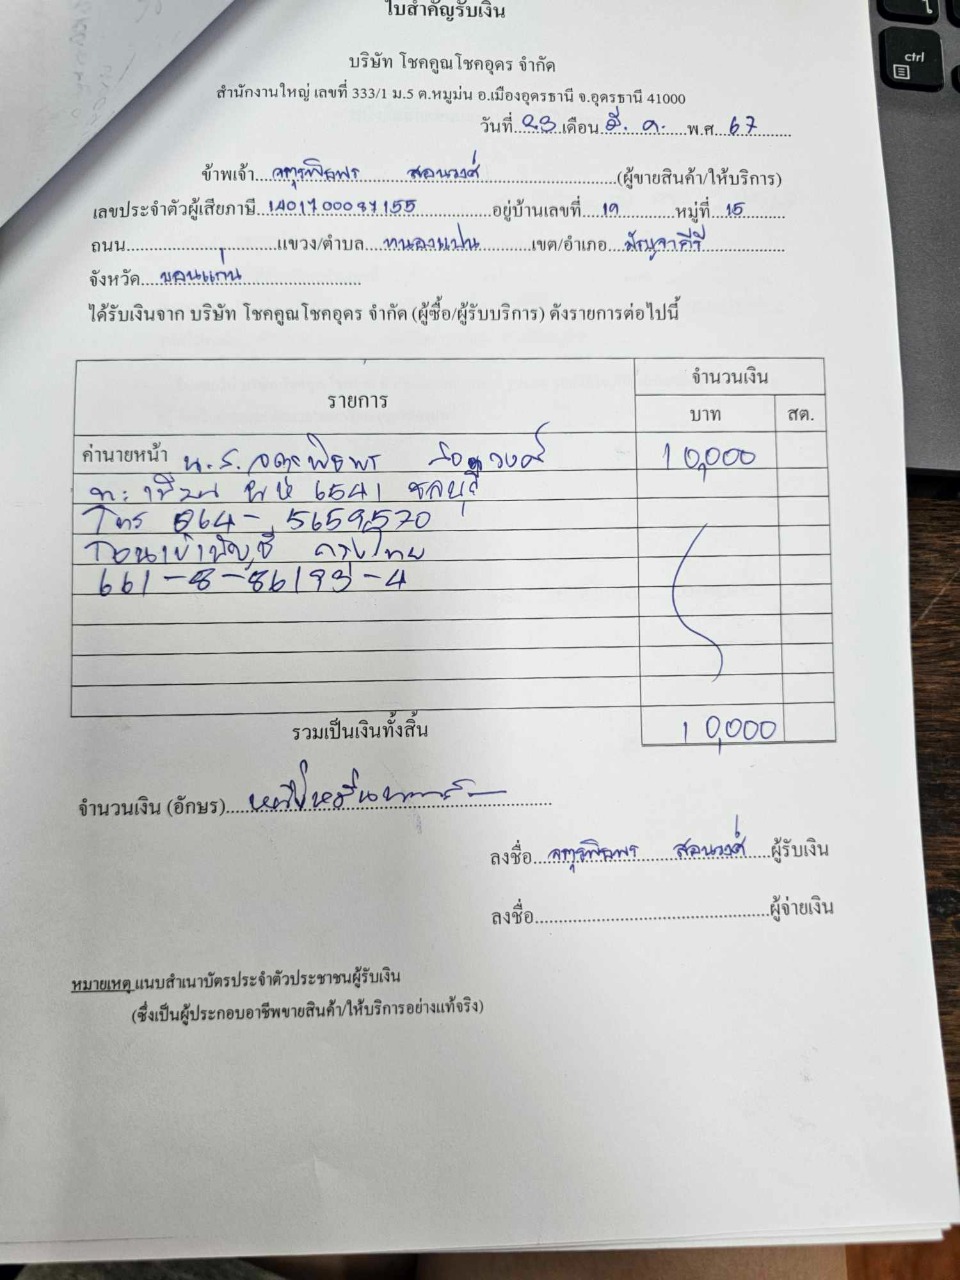 ใบสำคัญรับเงิน
บริษัท โชคคูณโชคอุดร จำกัด
สำนักงานใหญ่ เลขที่ 333/1 ม.5 ต.หมูม่น อ.เมืองอุดรธานี จ.อุดรธานี 41000
วันที่ 23 เดือน มี.ค. พ.ศ 67
ข้าพเจ้า จตุรพิธพร สอนวงศ์ (ผู้ขายสินค้า/ให้บริการ)
เลขประจำตัวผู้เสียภาษี 1401700087155 อยู่บ้านเลขที่ 19 หมู่ที่ 15
ถนน แขวง/ตำบล หนองแปน เขต/อำเภอ มัญจาคีรี
จังหวัด ขอนแก่น
ได้รับเงินจาก บริษัท โชคคูณโชคอุดร จำกัด (ผู้ซื้อ/ผู้รับบริการ) ดังรายการต่อไปนี้
รายการ จำนวนเงิน
บาท สต.
ค่านายหน้า น.ส. จตุรพิธพร สอนวงศ์ 10,000
ทะเบียน 6541 ชลบุรี
โทร 064-5659570
โอนเข้าบัญชี กรุงไทย
661-8-86193-4
รวมเป็นเงินทั้งสิ้น 10,000
จำนวนเงิน (อักษร) หนึ่งหมื่นบาทถ้วน
ลงชื่อ จตุรพิธพร สอนวงศ์ ผู้รับเงิน
ลงชื่อ ผู้จ่ายเงิน
หมายเหตุ แนบสำเนาบัตรประจำตัวประชาชนผู้รับเงิน
(ซึ่งเป็นผู้ประกอบอาชีพขายสินค้า/ให้บริการอย่างแท้จริง)
ctrl